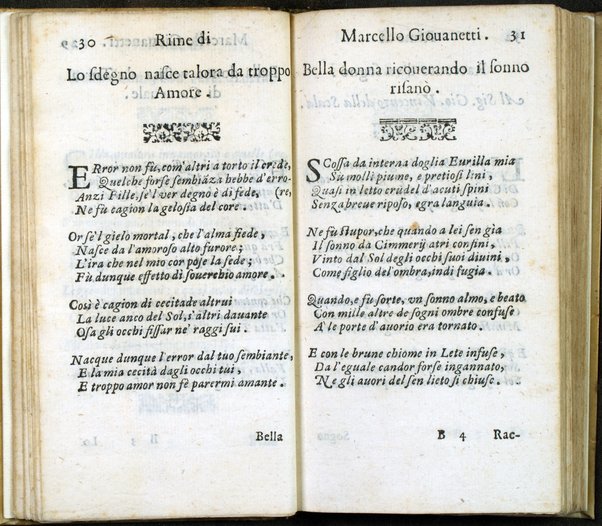 30 Rime di
Lo sdegno nasce talora da troppo
Amore.
ERror non fù, com'altri a torto il crede,
Quelche forse sembiāza hebbe d'erro-
Anzi Fille, se'l ver degno è di fede, (re,
Nè fù cagion la gelosia del core.
Or s'è l gielo mortal, che l'alma fiede,
Nasce da l'amoroso alto furore;
L'ira che nel mio cor pose la sede;
Fù dunque effetto di souerchio amore.
Così è cagion di cecitade altrui
La luce anco del Sol, s'altri dauante
Osa gli occhi fissar ne' raggi sui.
Nacque dunque l'error dal tuo sembiante,
E la mia cecità dagli occhi tui,
E troppo amor non fè parermi amante.
Bella
Marcello Giouanetti. 31
Bella donna ricouerando il sonno
risanò.
SCossa da interna doglia Eurilla mia
Sù molli piume, e pretiosi lini,
Quasi in letto crudel d'acuti spini
Senza breue riposo, egra languia.
Nè fù stupor, che quando a lei sen gia
Il sonno da Cimmerij atri confini,
Vinto dal Sol degli occhi suoi diuini,
Come figlio del'ombra, indi fugia.
Quando, e fù sorte, vn sonno almo, e beato
Con mille altre de sogni ombre confuse
A le porte d'auorio era tornato.
E con le brune chiome in Lete infuse,
Da l'eguale candor forse ingannato,
Ne gli auori del sen lieto si chiuse.
B 4 Rac-